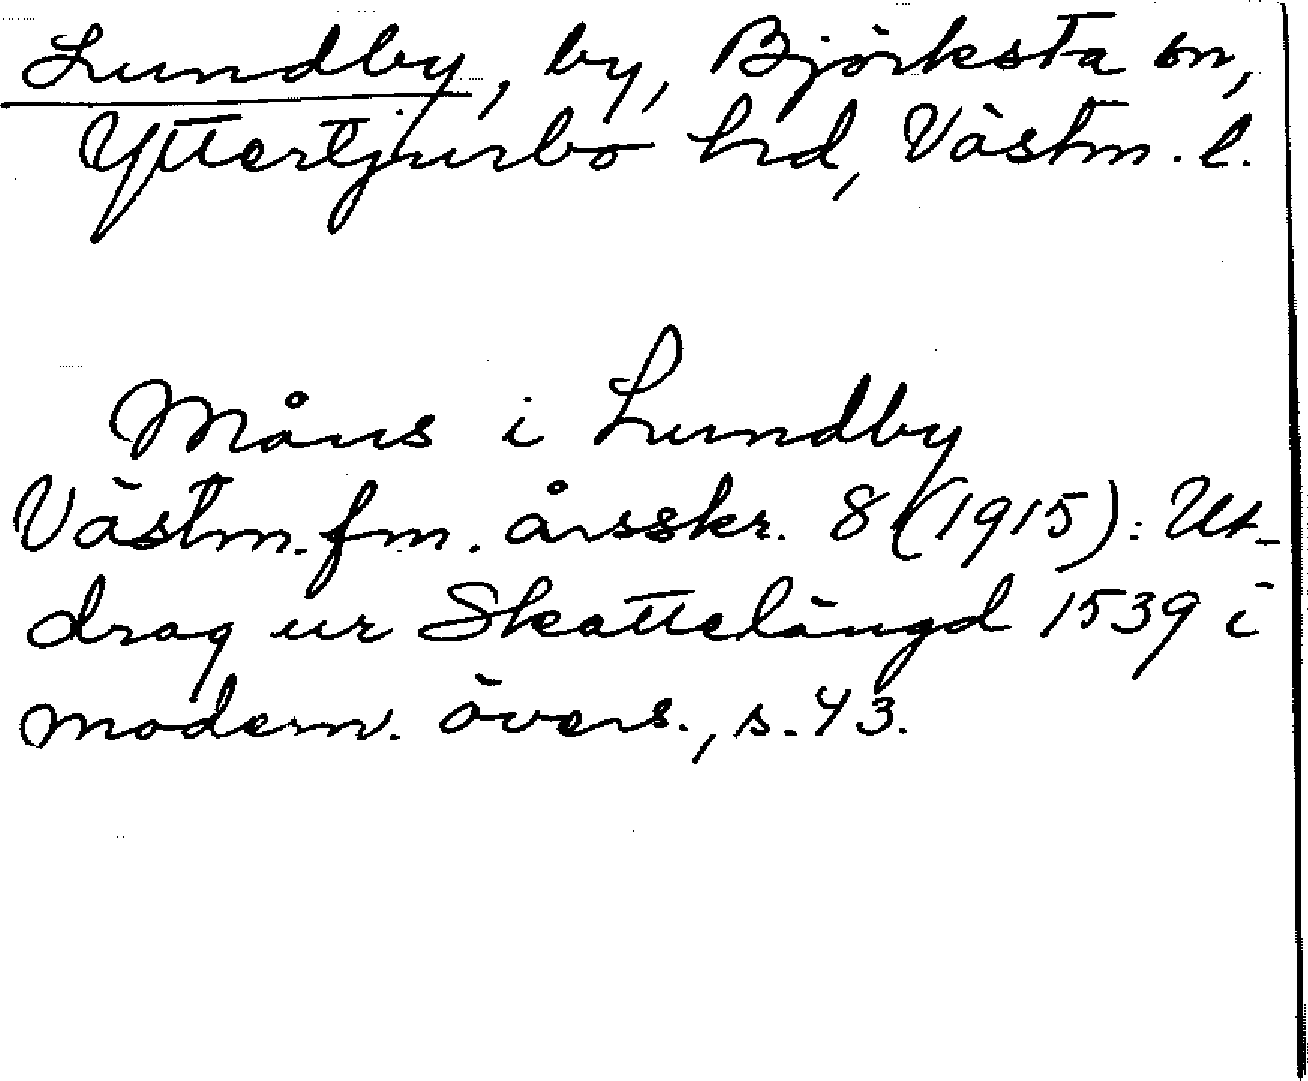 Lundby, by, Björksta sn,
Yttertjurbo hd, Västm. l.
Måns i Lundby
Västm. fm. årsskr. 8 (1915): Ut-
drag ur Skattelängd 1539 i
modern. övers., s. 43.